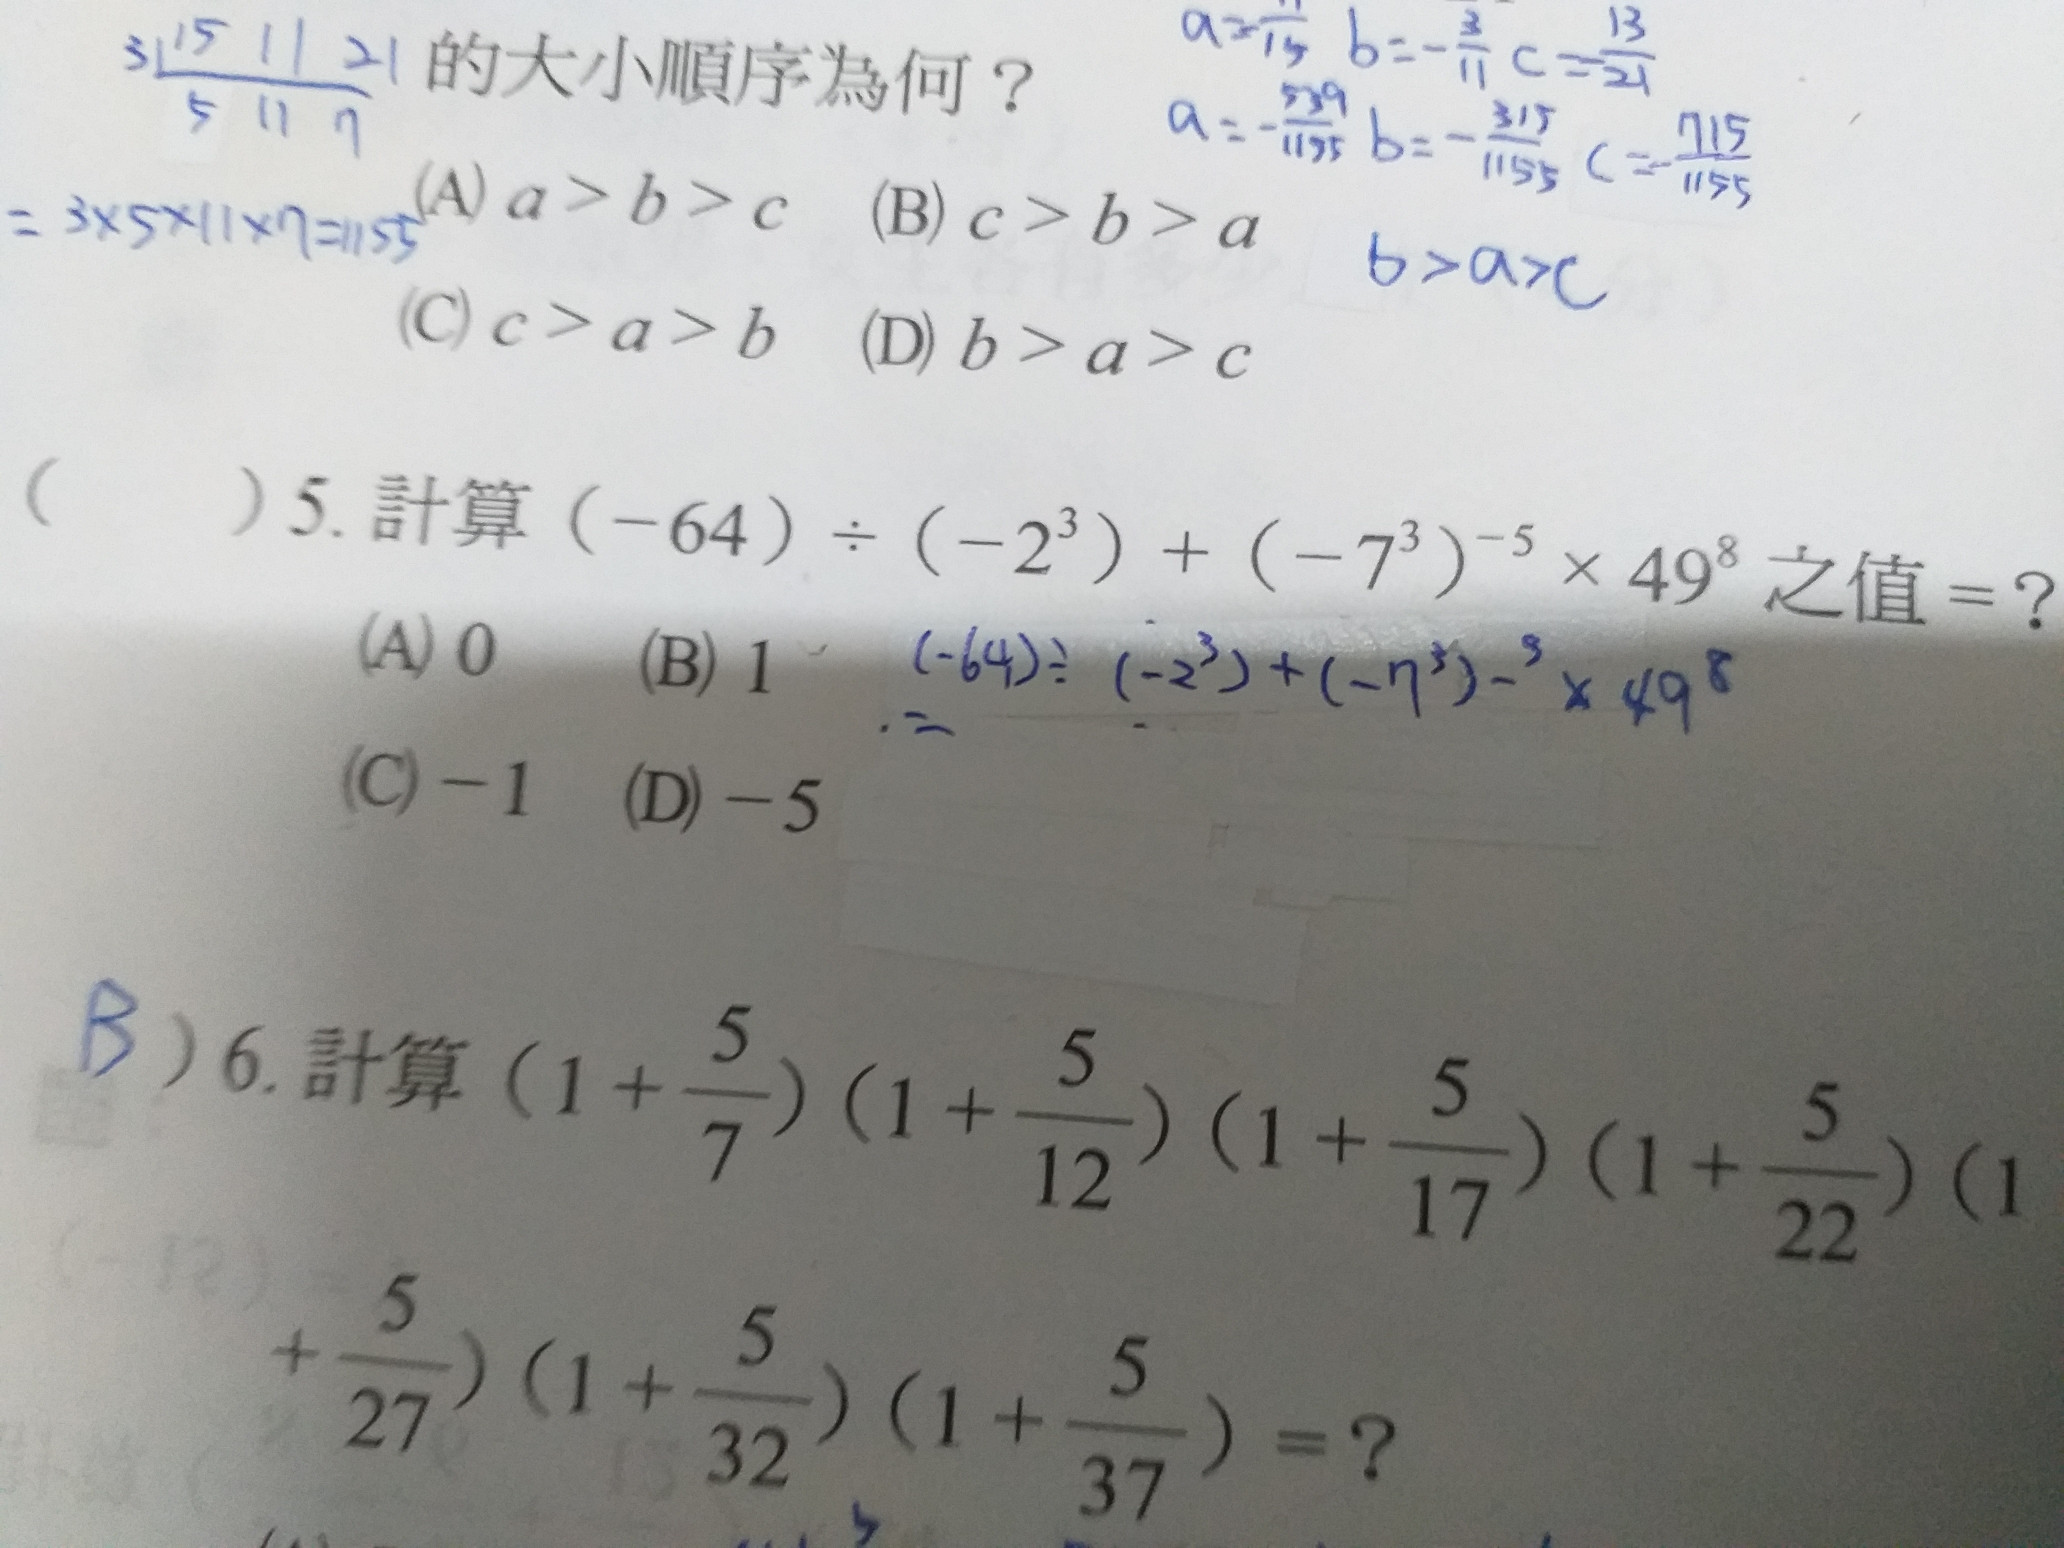 a = 11/15 b = -3/11 c = -13/21
3 15 11 21 的大小順序為何？
5 11 7
a = -539/1155 b = -315/1155 c = -715/1155
= 3×5×11×7=1155
(A) a > b > c (B) c > b > a
b > a > c
(C) c > a > b (D) b > a > c
( ) 5. 計算（－64）÷（－2³）＋（－7³）⁻⁵ × 49⁸ 之值＝？
(A) 0 (B) 1
(-64) ÷ (-2³) + (-7³)-⁵ × 49⁸
=
(C) －1 (D) －5
B ) 6. 計算（1＋5/7）（1＋5/12）（1＋5/17）（1＋5/22）（1
＋5/27）（1＋5/32）（1＋5/37）＝？